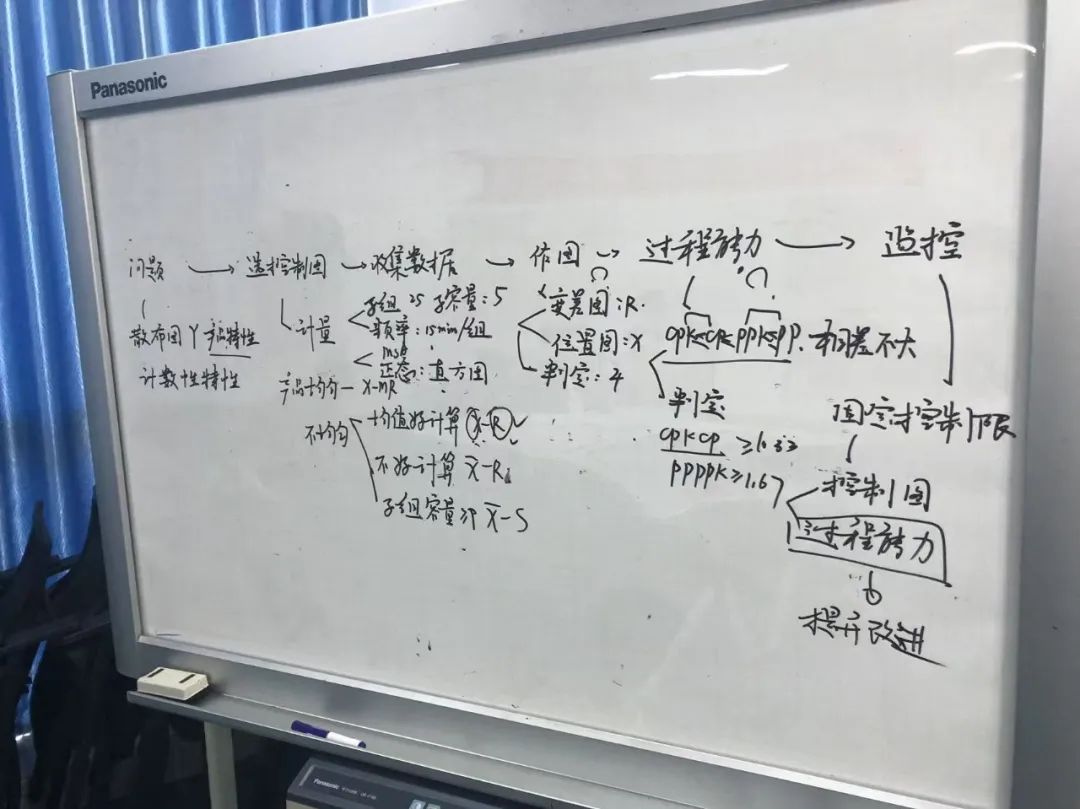 Panasonic
问题 → 选控制图 → 收集数据 → 作图 → 过程能力 → 监控
散布图 Y 产品特性
计数性特性
计量
子组25 子容量:5
频率:15min/组
msa
正态:直方图
产品均匀 - X-MR
不均匀
均值好计算 X̄-R ✓
不好计算 X̃-R
子组容量≥9 X̄-S
变差图:R.
位置图:X
判定:4
cpk≤cp ppk≤pp. 相差不大
判定
cpk cp ≥1.33
pp ppk ≥1.67
固定控制限
控制图
过程能力
提升改进
Panasonic